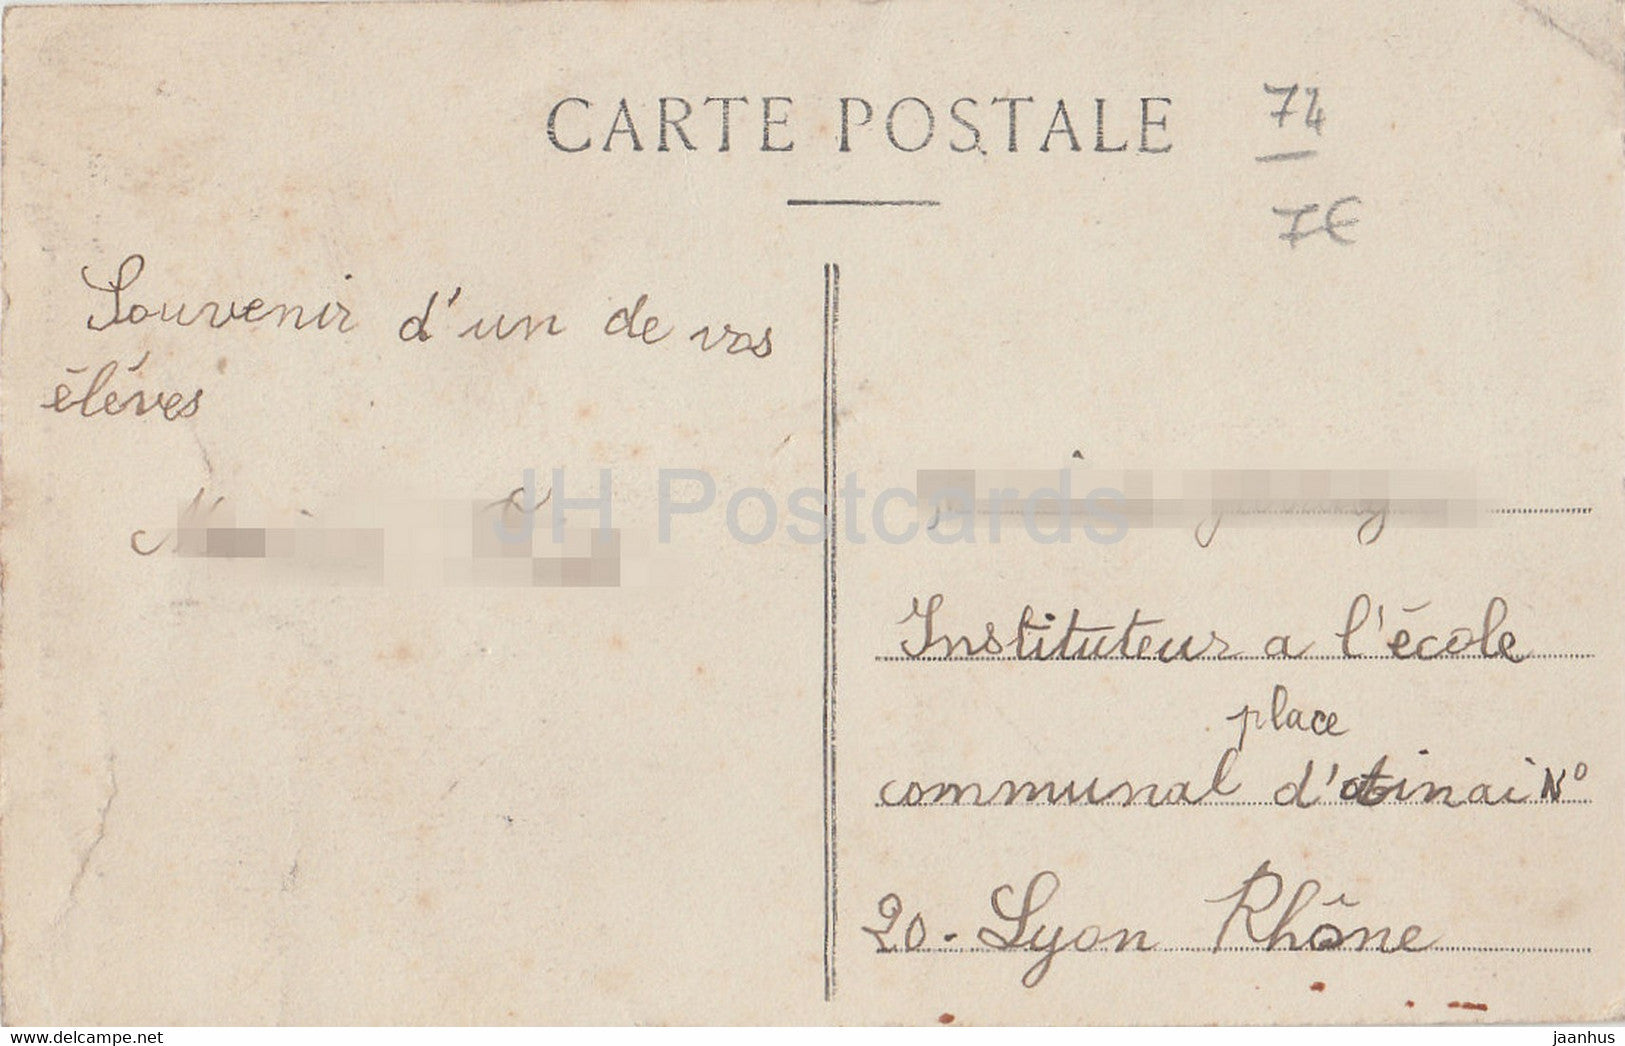 CARTE POSTALE
74
7€
Souvenir d'un de vos
éléves
JH Postcards
Instituteur a l'école
place
communal d'atinai N°
20 - Lyon Rhône
www.delcampe.net
jaanhus